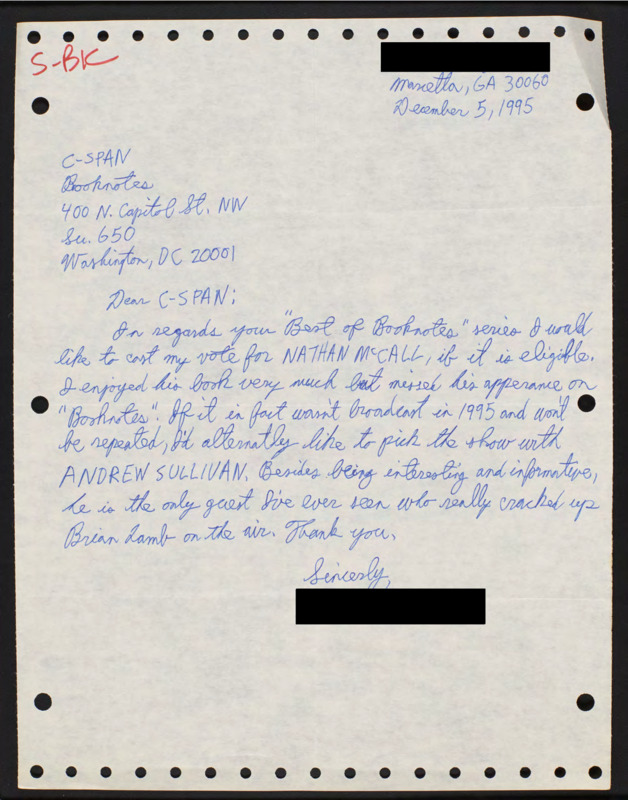 S-BK
Marietta, GA 30060
December 5, 1995
C-SPAN
Booknotes
400 N. Capitol St. NW
Su. 650
Washington, DC 20001
Dear C-SPAN;
In regards your "Best of Booknotes" series I would
like to cast my vote for NATHAN McCALL, if it is eligible.
I enjoyed his book very much but missed his apperance on
"Booknotes". If it in fact wasn't broadcast in 1995 and won't
be repeated, I'd alternatly like to pick the show with
ANDREW SULLIVAN. Besides being interesting and informative,
he is the only guest I've ever seen who really cracked up
Brian Lamb on the air. Thank you.
Sincerly,